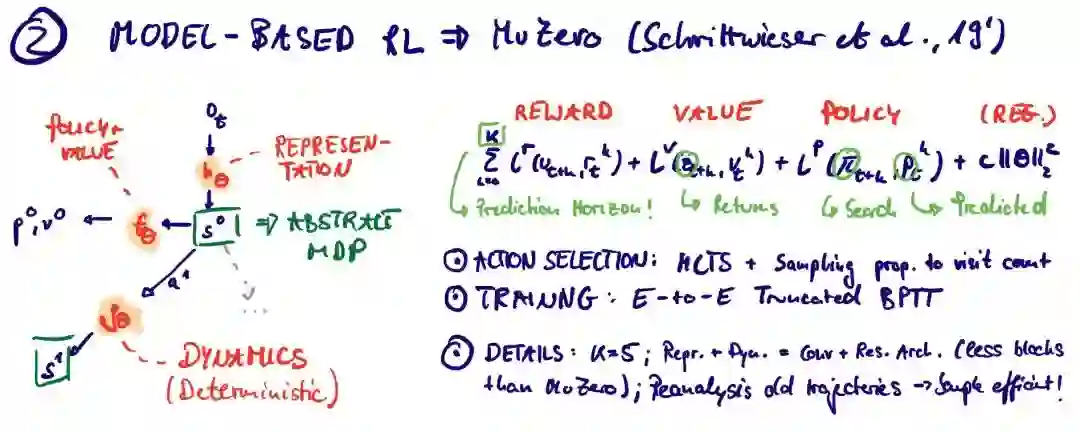 ② MODEL-BASED RL ⇒ MuZero (Schrittwieser et al., 19')
POLICY+
VALUE
o_t
REPRESEN-
TATION
h_θ
p⁰, v⁰ ← f_θ ← s⁰ ⇒ ABSTRACT
MDP
a¹
...
g_θ
s¹
DYNAMICS
(Deterministic)
REWARD VALUE POLICY (REG.)
K
Σ l^r(u_{t+k}, r_t^k) + l^v(z_{t+k}, v_t^k) + l^p(π_{t+k}, p_t^k) + c||θ||₂²
k=0
↳ Prediction Horizon! ↳ Returns ↳ Search ↳ Predicted
ACTION SELECTION: MCTS + Sampling prop. to visit count
TRAINNG: E-to-E Truncated BPTT
DETAILS: K=5; Repr. + Dyn. = Conv + Res. Arch. (less blocks
than MuZero); Reanalysis old trajectories → Sample efficient!